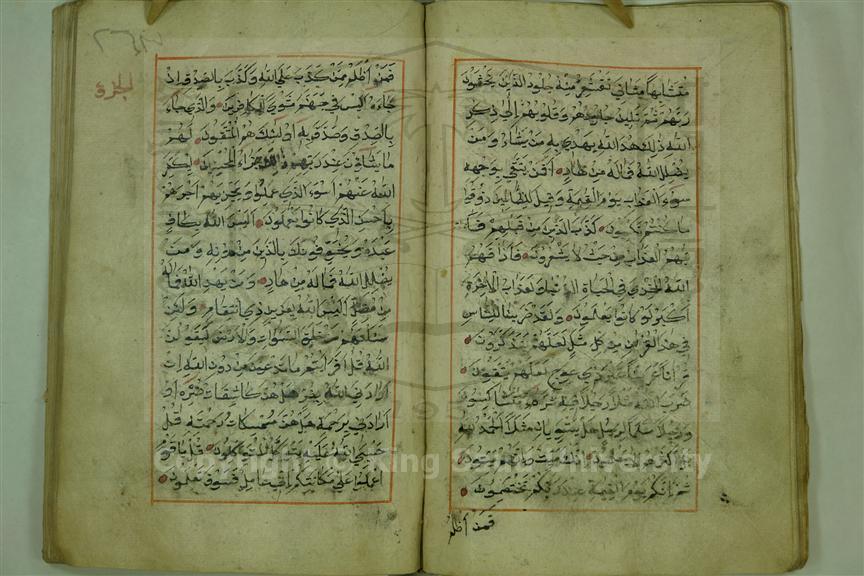 متشابها مثاني تقشعر منه جلود الذين يخشون
ربهم ثم تلين جلودهم وقلوبهم الى ذكر
الله ذلك هدى الله يهدي به من يشاء ومن
يضلل الله فما له من هاد افمن يتقي بوجهه
سوء العذاب يوم القيمة وقيل للظالمين ذوقوا
ما كنتم تكسبون كذب الذين من قبلهم فأ
تيهم العذاب من حيث لا يشعرون فاذاقهم
الله الخزي في الحياة الدنيا ولعذاب الآخرة
أكبر لو كانوا يعلمون ولقد ضربنا للناس
في هذا القرآن من كل مثل لعلهم يتذكرون
قرآنا عربيا غير ذي عوج لعلهم يتقون
ضرب الله مثلا رجلا فيه شركاء متشاكسون
ورجلا سلما لرجل هل يستويان مثلا الحمد لله
بل اكثرهم لا يعلمون انك ميت وانهم ميتون
ثم انكم يوم القيمة عند ربكم تختصمون
فمن أظلم
الجزء
فمن أظلم ممن كذب على الله وكذب بالصدق اذ
جاءه اليس في جهنم مثوى للكافرين والذي جاء
بالصدق وصدق به اولئك هم المتقون لهم
ما يشاؤن عند ربهم ذلك جزاء المحسنين ليكفر
الله عنهم اسوء الذي عملوا ويجزيهم اجرهم
باحسن الذي كانوا يعملون اليس الله بكاف
عبده ويخوفونك بالذين من دونه ومن
يضلل الله فما له من هاد ومن يهد الله فماله
من مضل اليس الله بعزيز ذي انتقام ولئن
سئلتهم من خلق السموات والارض ليقولن
الله قل افرايتم ما تدعون من دون الله ان
ارادني الله بضر هل هن كاشفات ضره أو
أرادني برحمة هل هن ممسكات رحمته قل
حسبي الله عليه يتوكل المتوكلون قل يا قوم
اعملوا على مكانتكم اني عامل فسوف تعلمون
Copyright © King Saud University